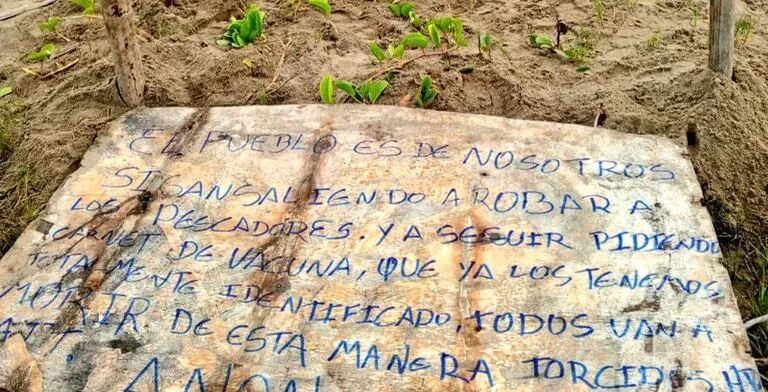 EL PUEBLO ES DE NOSOTROS
SIGANSALIENDO A ROBAR A
LOS PESCADORES. Y A SEGUIR PIDIENDO
CARNET DE VACUNA, QUE YA LOS TENEMOS
TOTA MENTE IDENTIFICADO, TODOS VAN A
MORIR DE ESTA MANERA TORCIDOS
ATT: